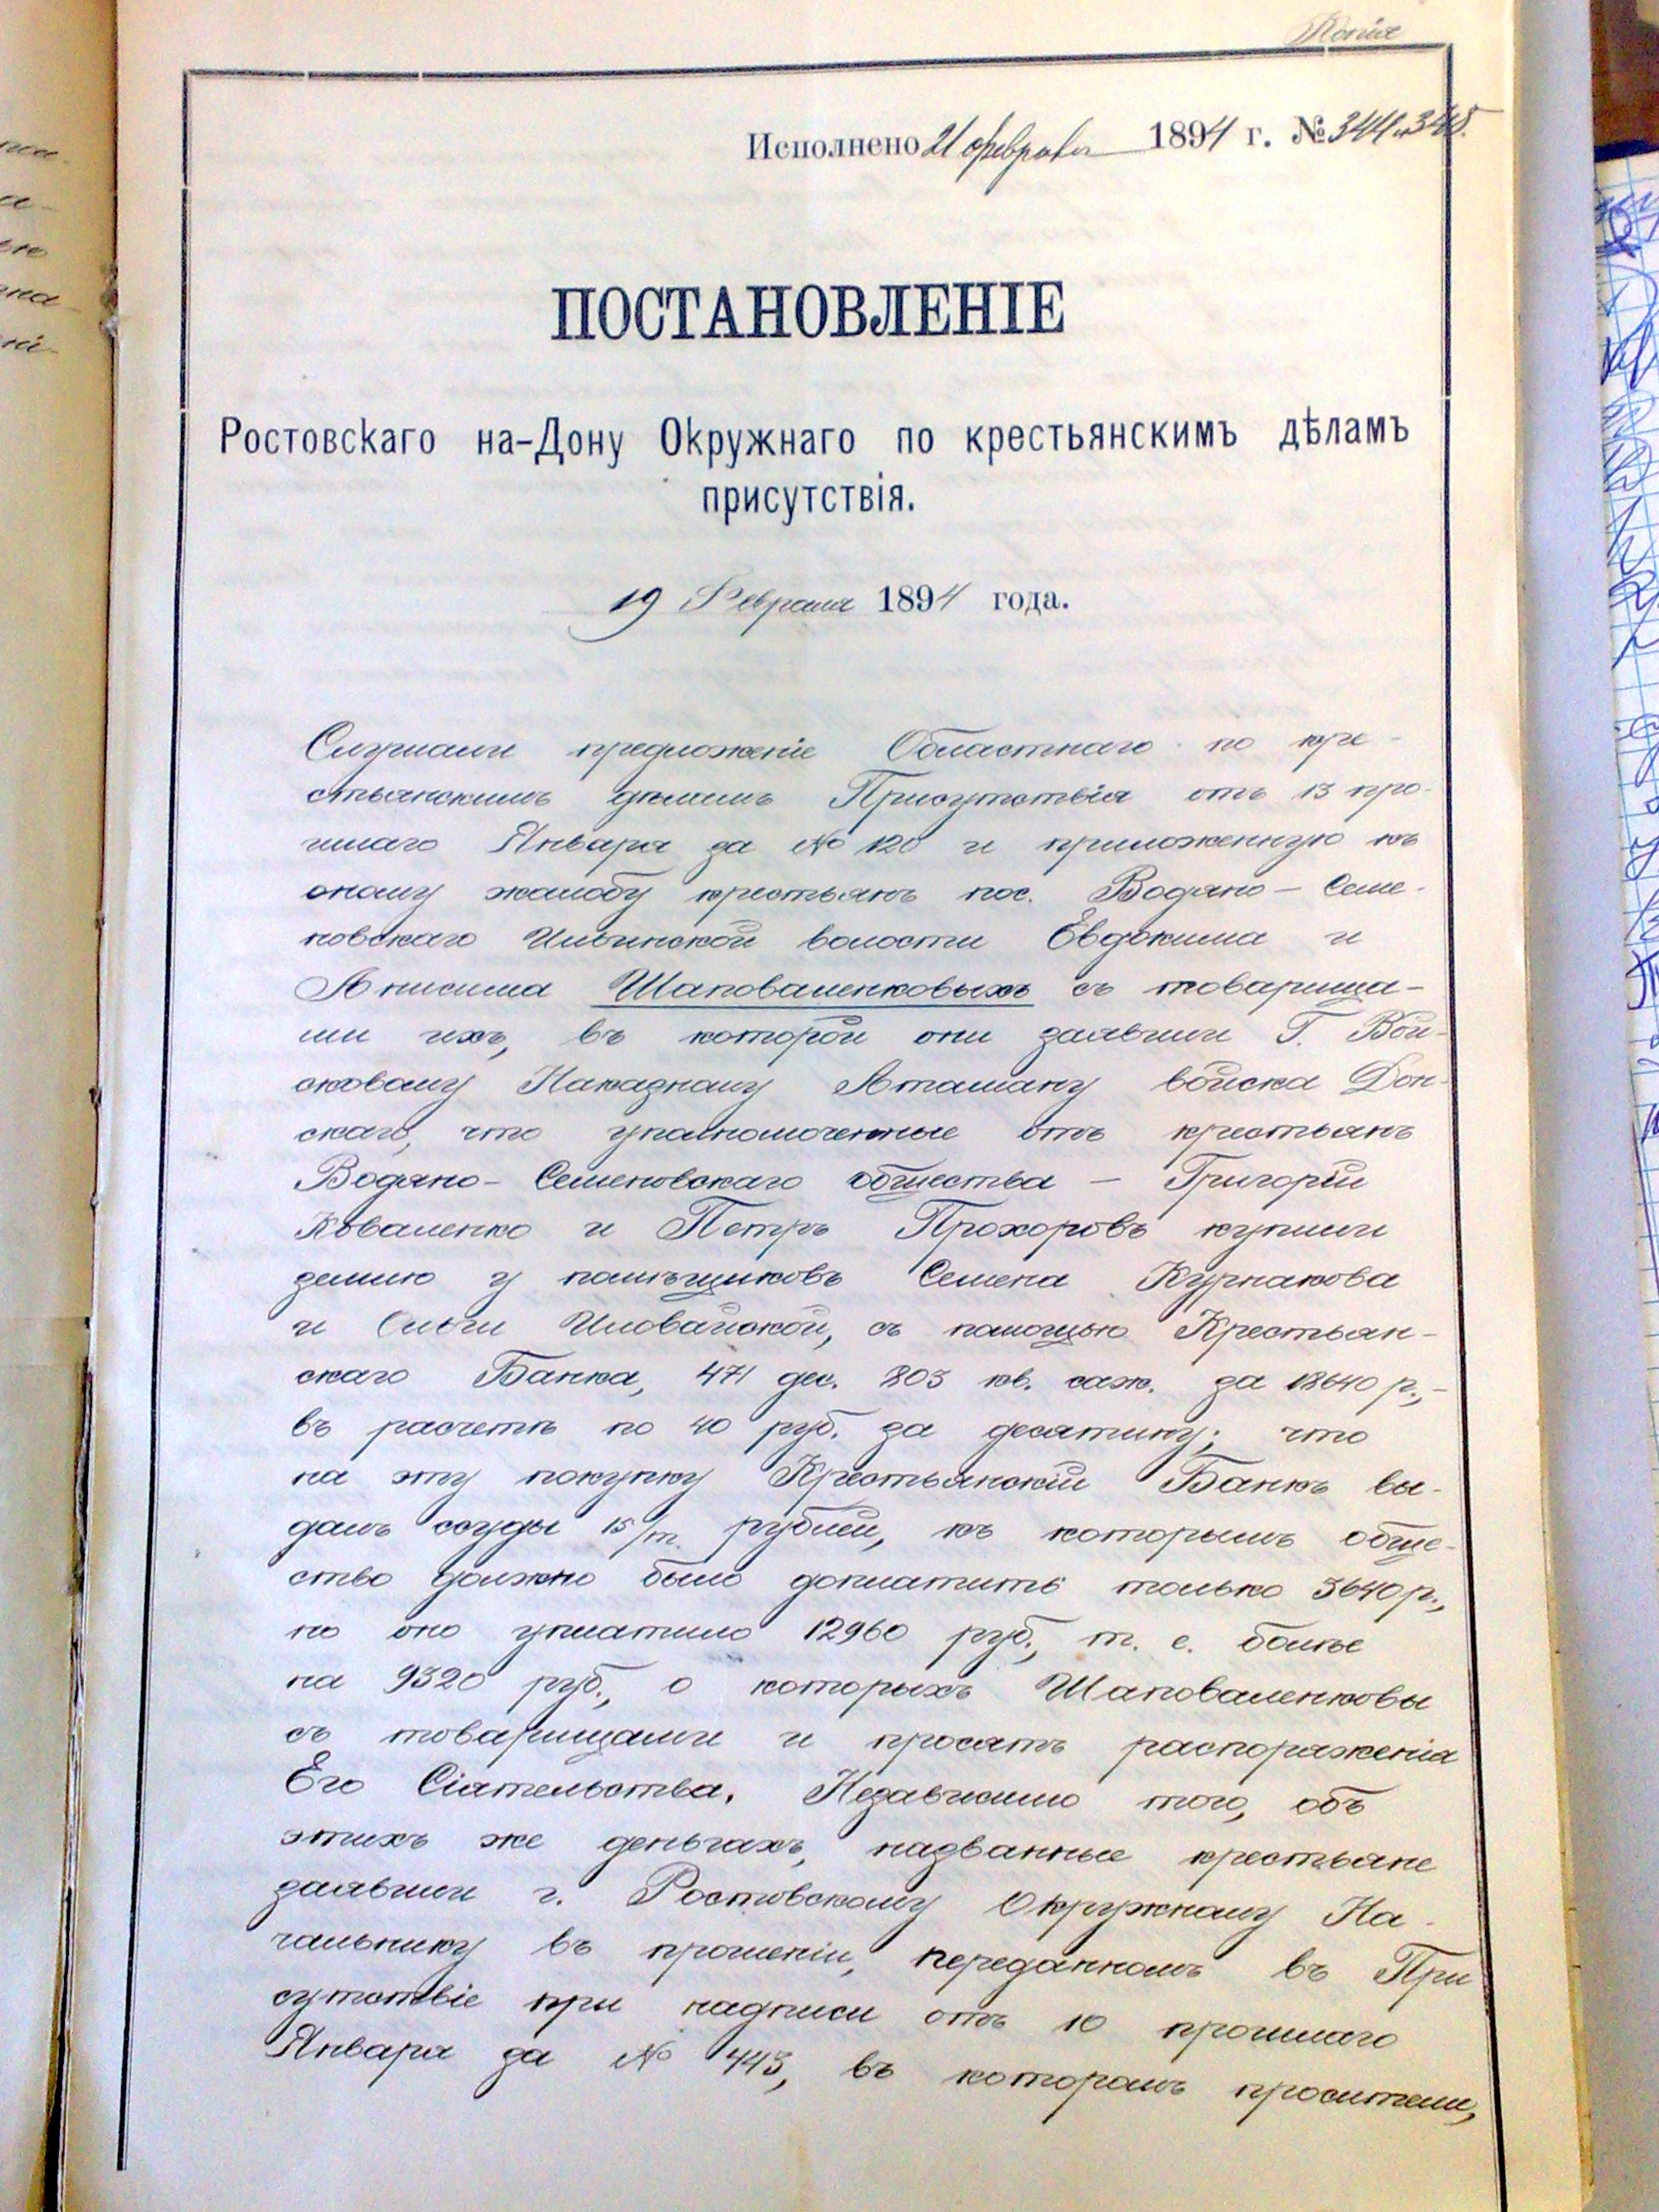 Копія
Исполнено 21 февраля 1894 г. № 344 и 345.
ПОСТАНОВЛЕНІЕ
Ростовскаго на-Дону Окружнаго по крестьянскимъ дѣламъ
присутствія.
19 Февраля 1894 года.
Слушали предложеніе Областнаго по кре-
стьянскимъ дѣламъ Присутствія отъ 13 про-
шлаго Января за № 120 и приложенную къ
оному жалобу крестьянъ пос. Водяно-Семе-
новскаго Ильинской волости Евдокима и
Анисима Шаповаленковыхъ съ товарища-
ми ихъ, въ которой они заявили Г. Вой-
сковому Наказному Атаману войска Дон-
скаго, что уполномоченные отъ крестьянъ
Водяно-Семеновскаго общества - Григорій
Коваленко и Петръ Прохоровъ купили
землю у помѣщиковъ Семена Курнакова
и Ольги Иловайской, съ помощью Крестьян-
скаго Банка, 471 дес. 803 кв. саж. за 18640 р.,-
въ расчетѣ по 40 руб. за десятину; что
на эту покупку Крестьянскій Банкъ вы-
далъ ссуды 15/т. рублей, къ которымъ обще-
ство должно было доплатить только 3640 р.,
но оно уплатило 12960 руб., т. е. болѣе
на 9320 руб., о которыхъ Шаповаленковы
съ товарищами и просятъ распоряженія
Его Сіятельства. Независимо того, объ
этихъ же деньгахъ, названные крестьяне
заявили г. Ростовскому Окружному На-
чальнику въ прошеніи, переданномъ въ При
сутствіе при надписи отъ 10 прошлаго
Января за № 443, въ которомъ просители,